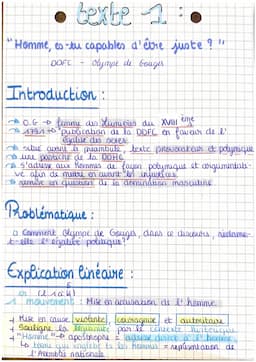 texte 1 :
"Homme, es-tu capables d'être juste ? "
DDFC - Olympe de Gouges
Introduction :
→ O.G → femme des Lumières du XVIII ème
→ 1791 → publication de la DDFC en faveur de l'
égalité des sexes
→ situé avant le préambule, texte provocateur et polémique
→ une postiche de la DDHC
→ s'adresse aux Hommes de façon polémique et argumentati-
ve afin de mettre en avant les injustices
→ remise en question de la domination masculine
Problématique :
Comment Olympe de Gouges, dans ce discours, réclame-
t-elle l'égalité politique?
Explication linéaire :
1 mouvement : Mise en accusation de l'homme
↳ Mise en cause violente, courageuse et autoritaire
↳ Souligne la légitimité par le contexte historique
↳ "Homme" → apostrophe = adresse directe à l'homme
= représentation de
l'Assemblée nationale